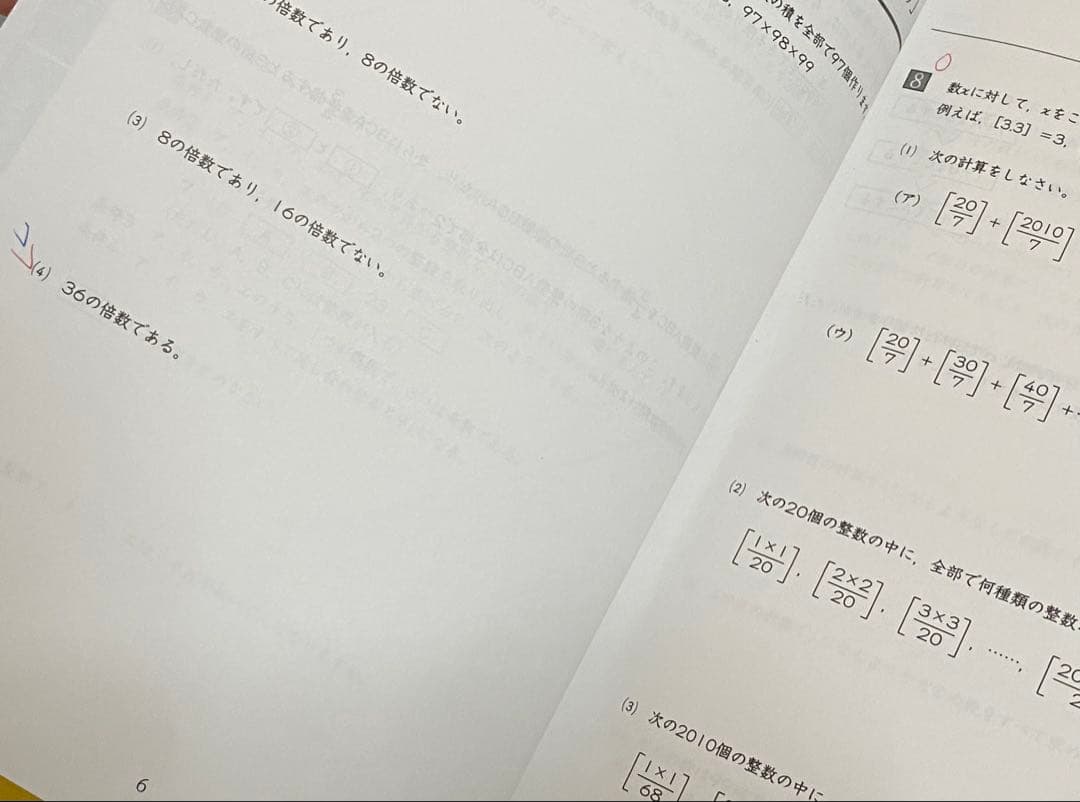 の積を全部で97個作ります
97×98×99
の倍数であり，8の倍数でない。
(3) 8の倍数であり，16の倍数でない。
(4) 36の倍数である。
6
8 数xに対して，xをこ
例えば，[3.3]＝3，
(1) 次の計算をしなさい。
(ア) [20/7]+[2010/7]
(ウ) [20/7]+[30/7]+[40/7]+
(2) 次の20個の整数の中に，全部で何種類の整数
[1×1/20]，[2×2/20]，[3×3/20]，……，[20
(3) 次の2010個の整数の中に
[1×1/68]